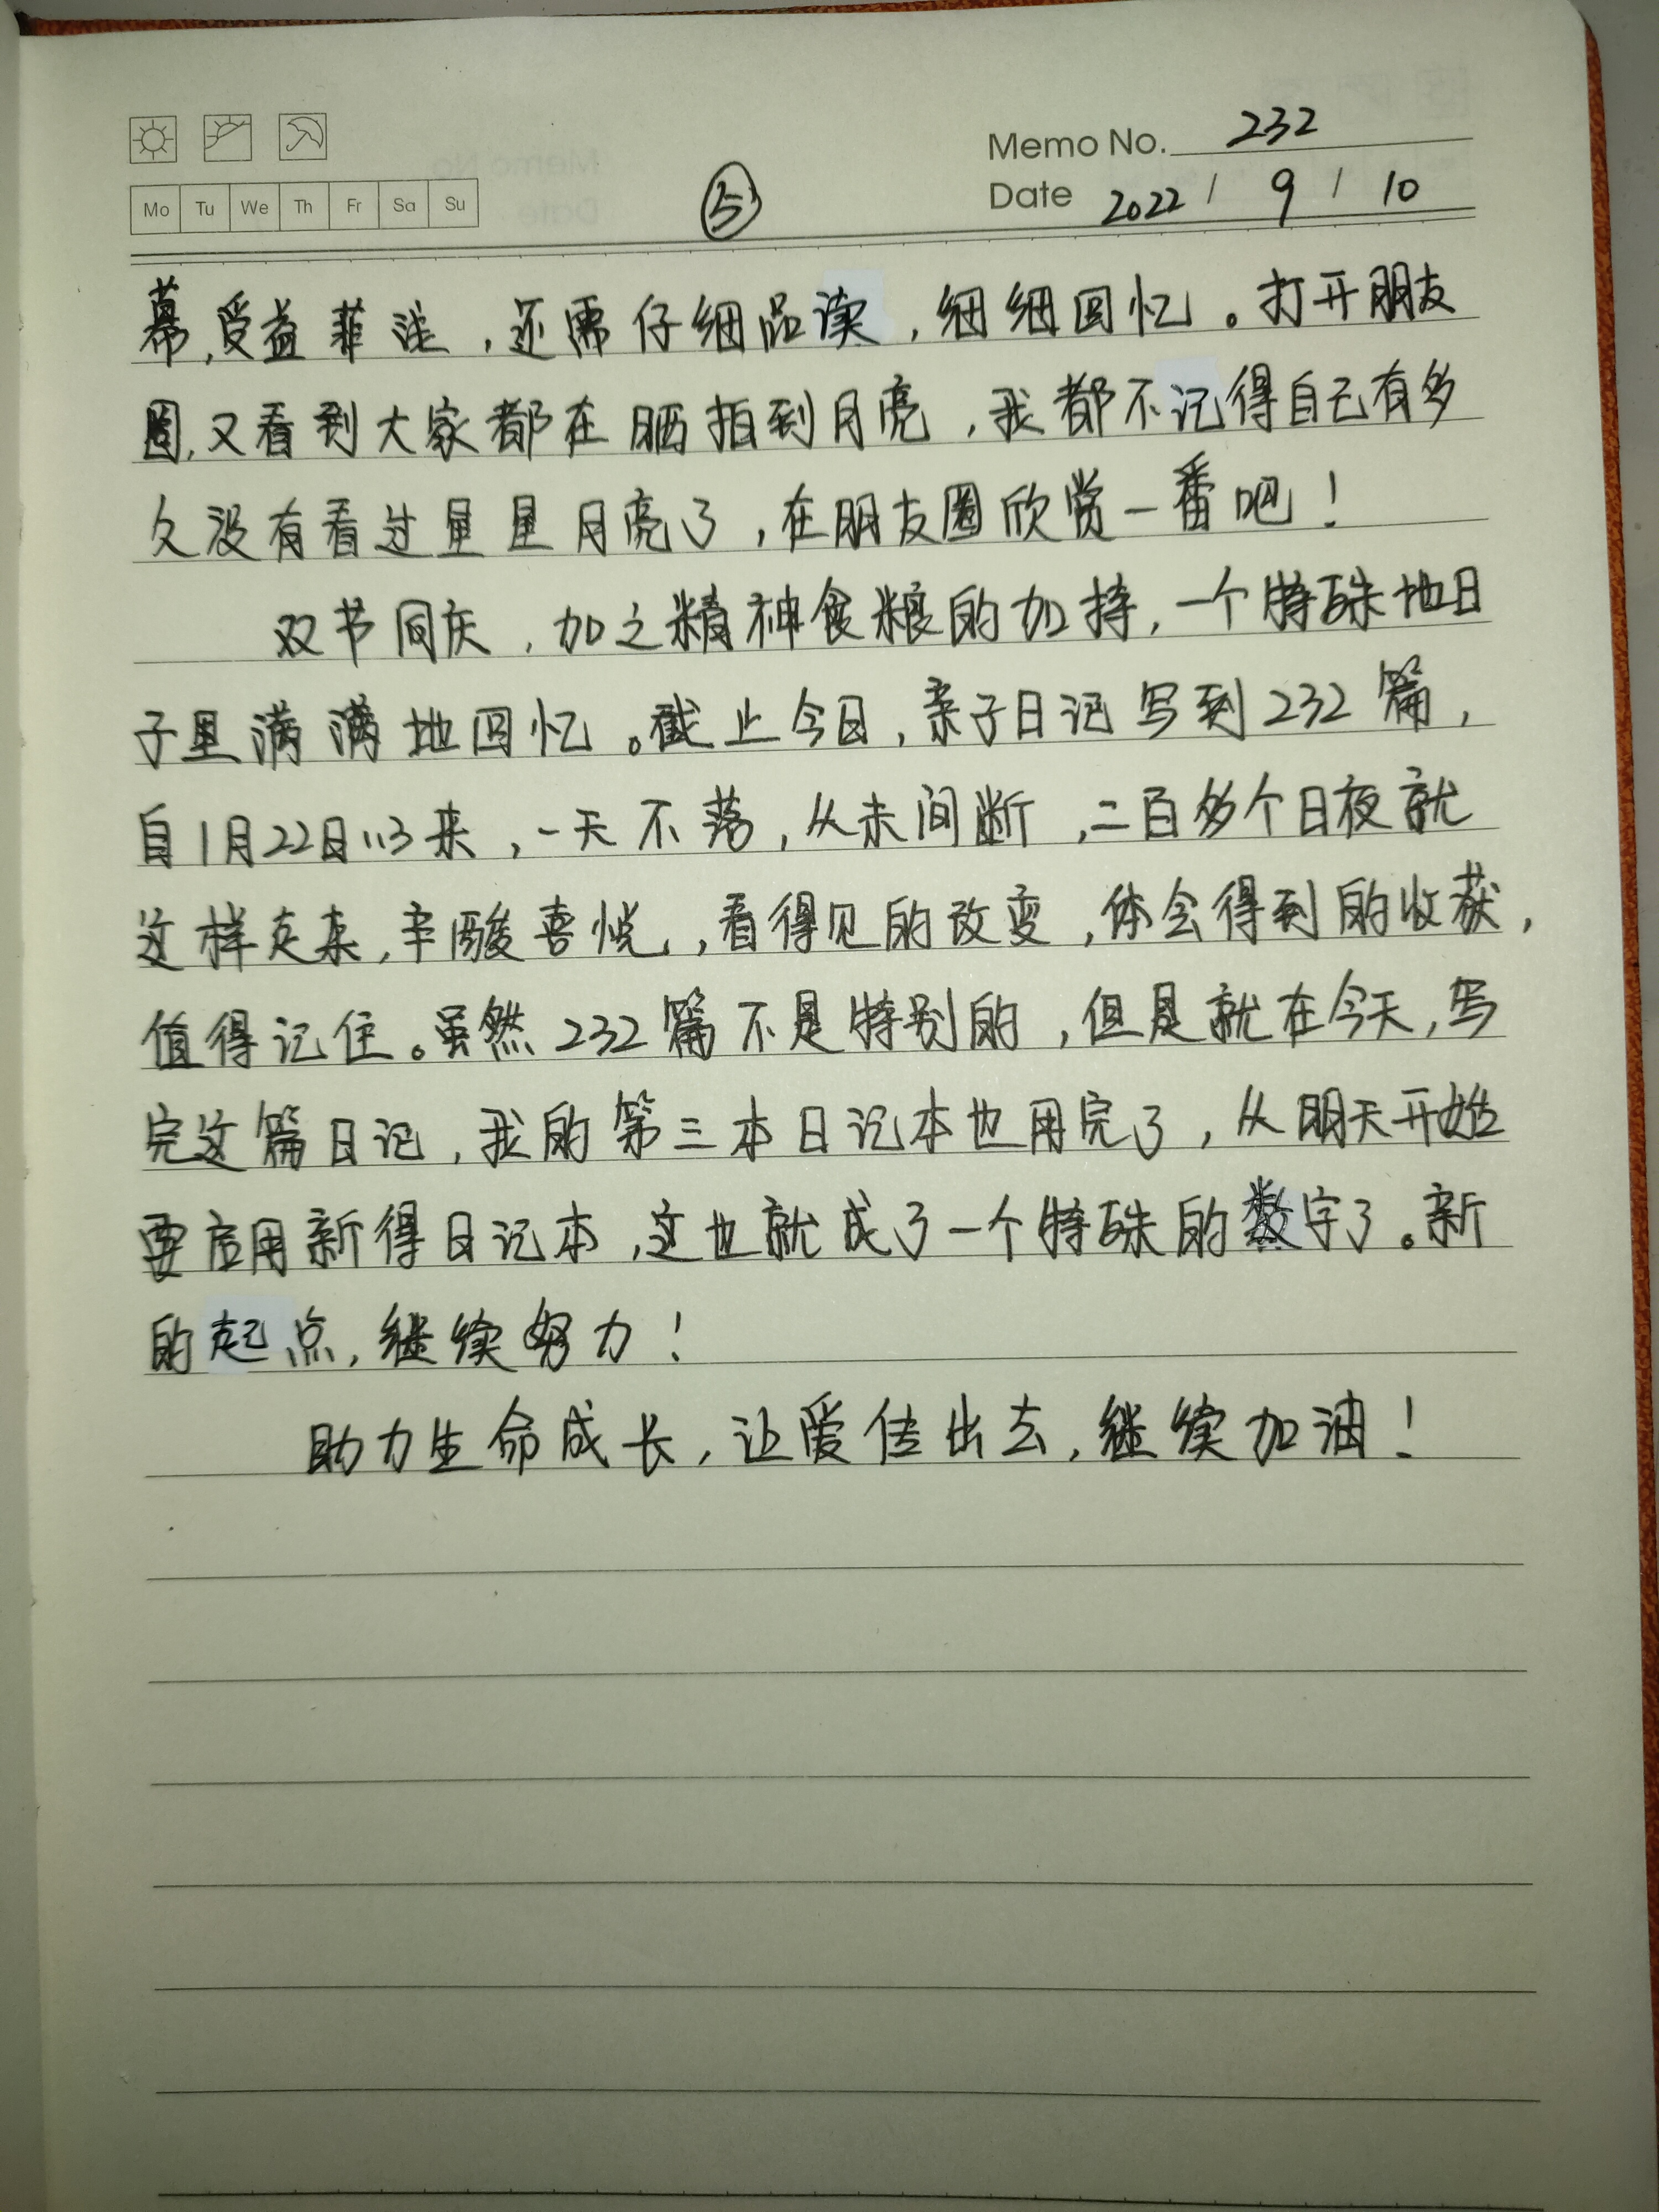 Memo No. 232
Mo Tu We Th Fr Sa Su
⑤
Date 2022 / 9 / 10
幕,受益菲浅,还需仔细品读,细细回忆。打开朋友
圈,又看到大家都在晒拍到月亮,我都不记得自己有多
久没有看过星星月亮了,在朋友圈欣赏一番吧!
双节同庆,加之精神食粮的加持,一个特殊地日
子里满满地回忆。截止今日,亲子日记写到232篇,
自1月22日113来,一天不落,从未间断,二百多个日夜就
这样走来,辛酸喜悦,看得见的改变,体会得到的收获,
值得记住。虽然232篇不是特别的,但是就在今天,写
完这篇日记,我的第三本日记本也用完了,从明天开始
要启用新得日记本,这也就成了一个特殊的数字了。新
的起点,继续努力!
助力生命成长,让爱传出去,继续加油!